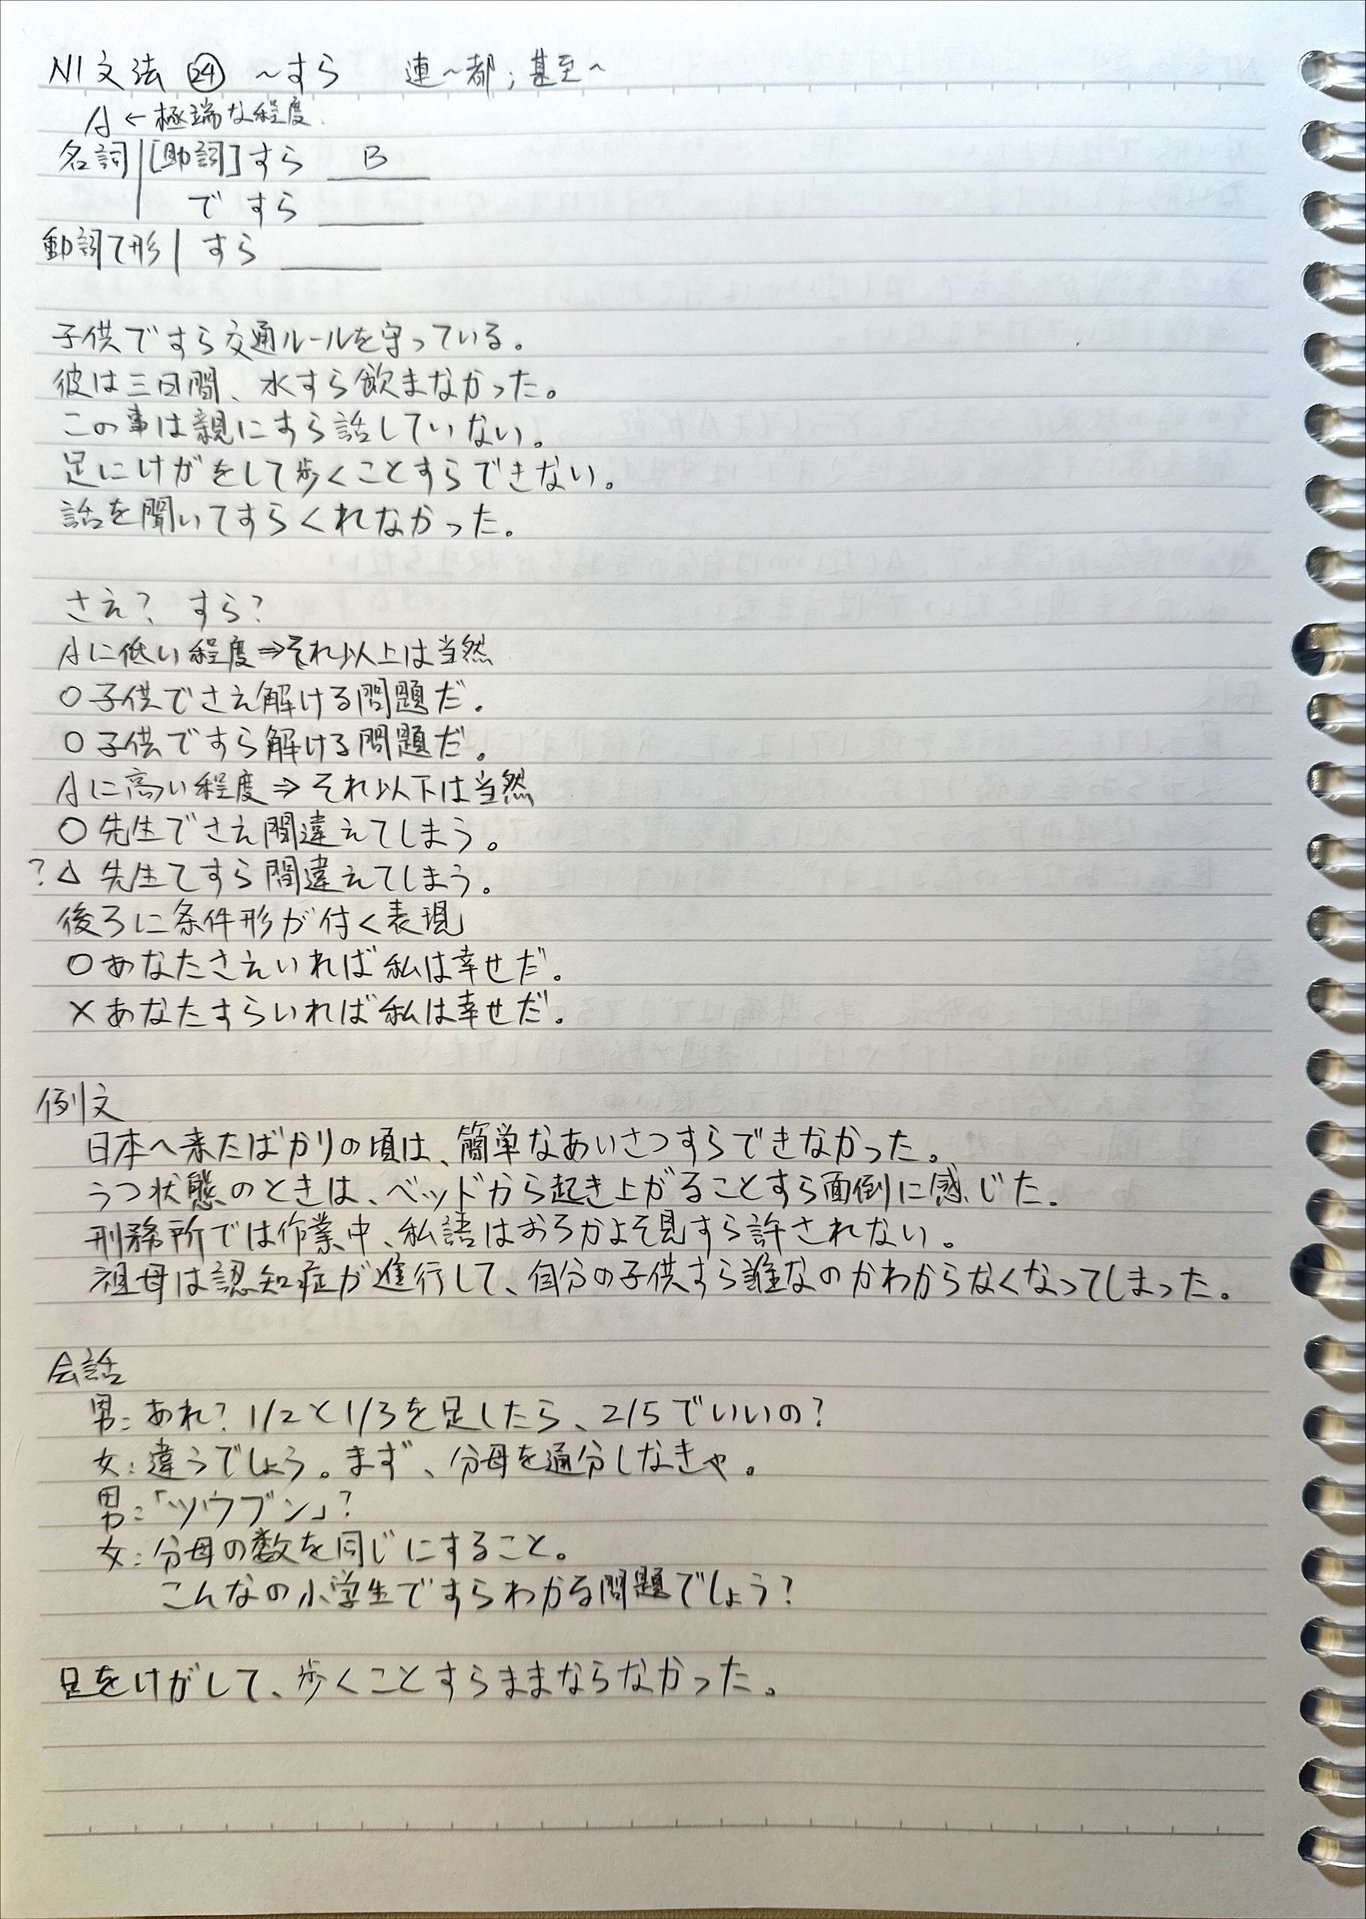 N1文法 ㉔ ～すら 連～都；甚至～
A←極端な程度
名詞|[助詞]すら B
ですら
動詞て形|すら
子供ですら交通ルールを守っている。
彼は三日間、水すら飲まなかった。
この事は親にすら話していない。
足にけがをして歩くことすらできない。
話を聞いてすらくれなかった。
さえ？ すら？
Aに低い程度⇒それ以上は当然
○子供でさえ解ける問題だ。
○子供ですら解ける問題だ。
Aに高い程度⇒それ以下は当然
○先生でさえ間違えてしまう。
?△ 先生てすら間違えてしまう。
後ろに条件形が付く表現
○あなたさえいれば私は幸せだ。
×あなたすらいれば私は幸せだ。
例文
日本へ来たばかりの頃は、簡単なあいさつすらできなかった。
うつ状態のときは、ベッドから起き上がることすら面倒に感じた。
刑務所では作業中、私語はおろかよそ見すら許されない。
祖母は認知症が進行して、自分の子供すら誰なのかわからなくなってしまった。
会話
男：あれ？1/2と1/3を足したら、2/5でいいの？
女：違うでしょう。まず、分母を通分しなきゃ。
男：「ツウブン」？
女：分母の数を同じにすること。
こんなの小学生ですらわかる問題でしょう？
足をけがして、歩くことすらままならなかった。